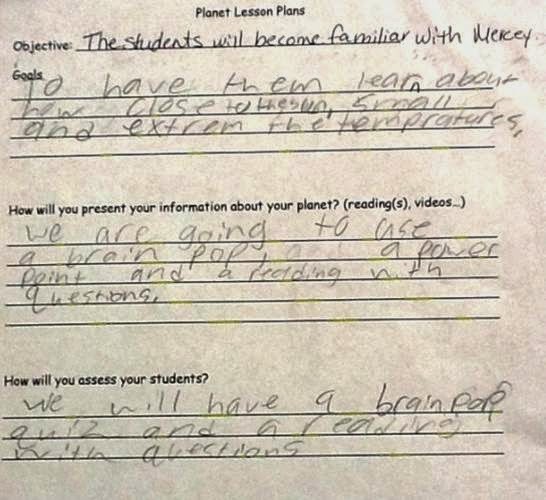 Planet Lesson Plans
Objective: The students will become familiar with Mercey
Goals
To have them learn about
how close to the sun, small
and extrem the tempratures,
How will you present your information about your planet? (reading(s), videos...)
We are going to use
a brain pop, a power
point and a reading with
questions.
How will you assess your students?
We will have a brain pop
quiz and a reading
with questions